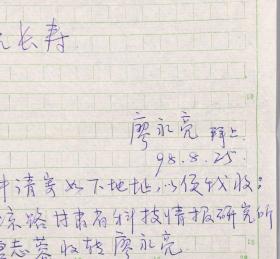 长寿
廖永亮 拜上
98.8.25.
请寄如下地址,以便我收:
路甘肃省科技情报研究所
志蓉 收转 廖永亮